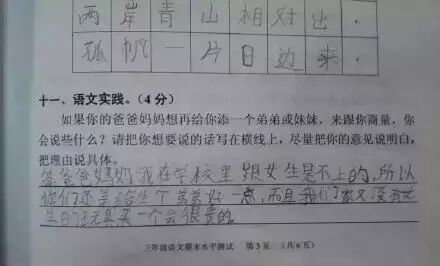 两岸青山相对出.
孤帆一片日边来.
十一、语文实践。（4分）
如果你的爸爸妈妈想再给你添一个弟弟或妹妹，来跟你商量，你
会说些什么？请把你想要说的话写在横线上，尽量把你的意见说明白，
把理由说具体。
答爸爸妈妈我在学校里跟女生是不上的,所以
你们还是给生个弟弟好一点,而且我们家又没有女
生的玩具买一个会很贵的
三年级语文期末水平测试 第3页 （共6页）